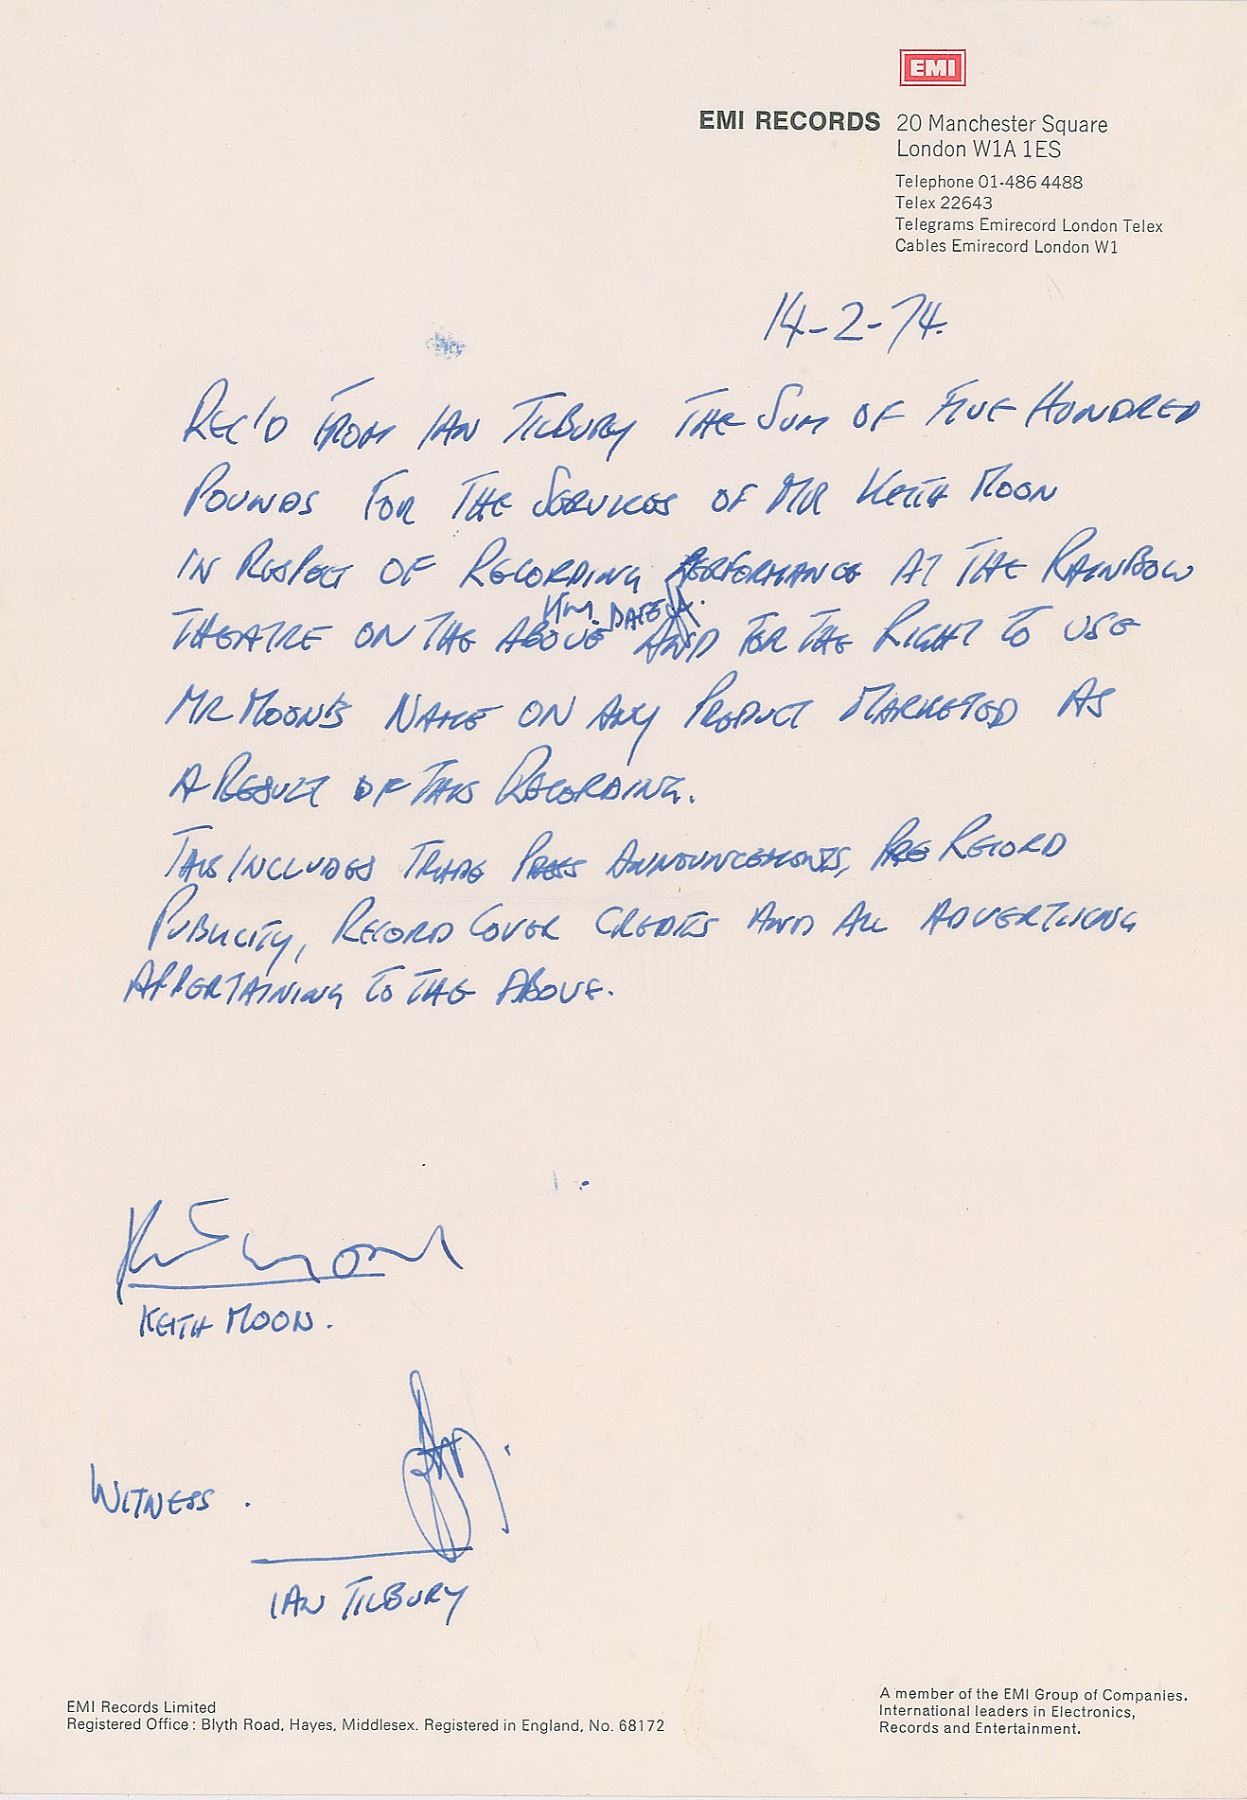 EMI
EMI RECORDS 20 Manchester Square
London W1A 1ES
Telephone 01-486 4488
Telex 22643
Telegrams Emirecord London Telex
Cables Emirecord London W1
14-2-74.
REC'D FROM IAN TILBURY THE SUM OF FIVE HUNDRED
POUNDS FOR THE SERVICES OF MR KEITH MOON
IN RESPECT OF RECORDING PERFORMANCE AT THE RAINBOW
THEATRE ON THE ABOVE DATE AND FOR THE RIGHT TO USE
MR MOON'S NAME ON ANY PRODUCT MARKETED AS
A RESULT OF THIS RECORDING.
THIS INCLUDES TRADE PRESS ANNOUNCEMENTS, PRE RECORD
PUBLICITY, RECORD COVER CREDITS AND ALL ADVERTISING
APPERTAINING TO THE ABOVE.
Keith Moon
KEITH MOON.
WITNESS.
IAN TILBURY
EMI Records Limited
Registered Office: Blyth Road, Hayes, Middlesex. Registered in England, No. 68172
A member of the EMI Group of Companies.
International leaders in Electronics,
Records and Entertainment.